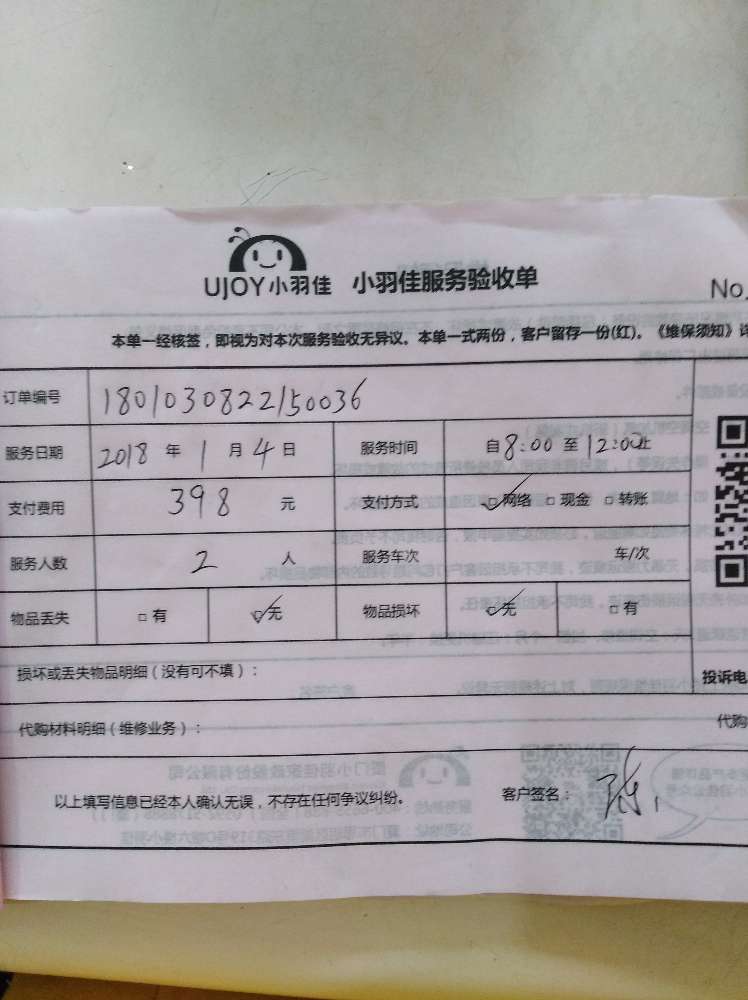 UJOY小羽佳 小羽佳服务验收单
No.
本单一经核签，即视为对本次服务验收无异议。本单一式两份，客户留存一份(红)。《维保须知》详
订单编号 1801030822150036
服务日期 2018 年 1 月 4 日 服务时间 自 8:00 至 12:00 止
支付费用 398 元 支付方式 ☑网络 □现金 □转账
服务人数 2 人 服务车次 车/次
物品丢失 □有 ☑无 物品损坏 ☑无 □有
损坏或丢失物品明细（没有可不填）：
投诉电
代购材料明细（维修业务）：
代购
以上填写信息已经本人确认无误，不存在任何争议纠纷。 客户签名：